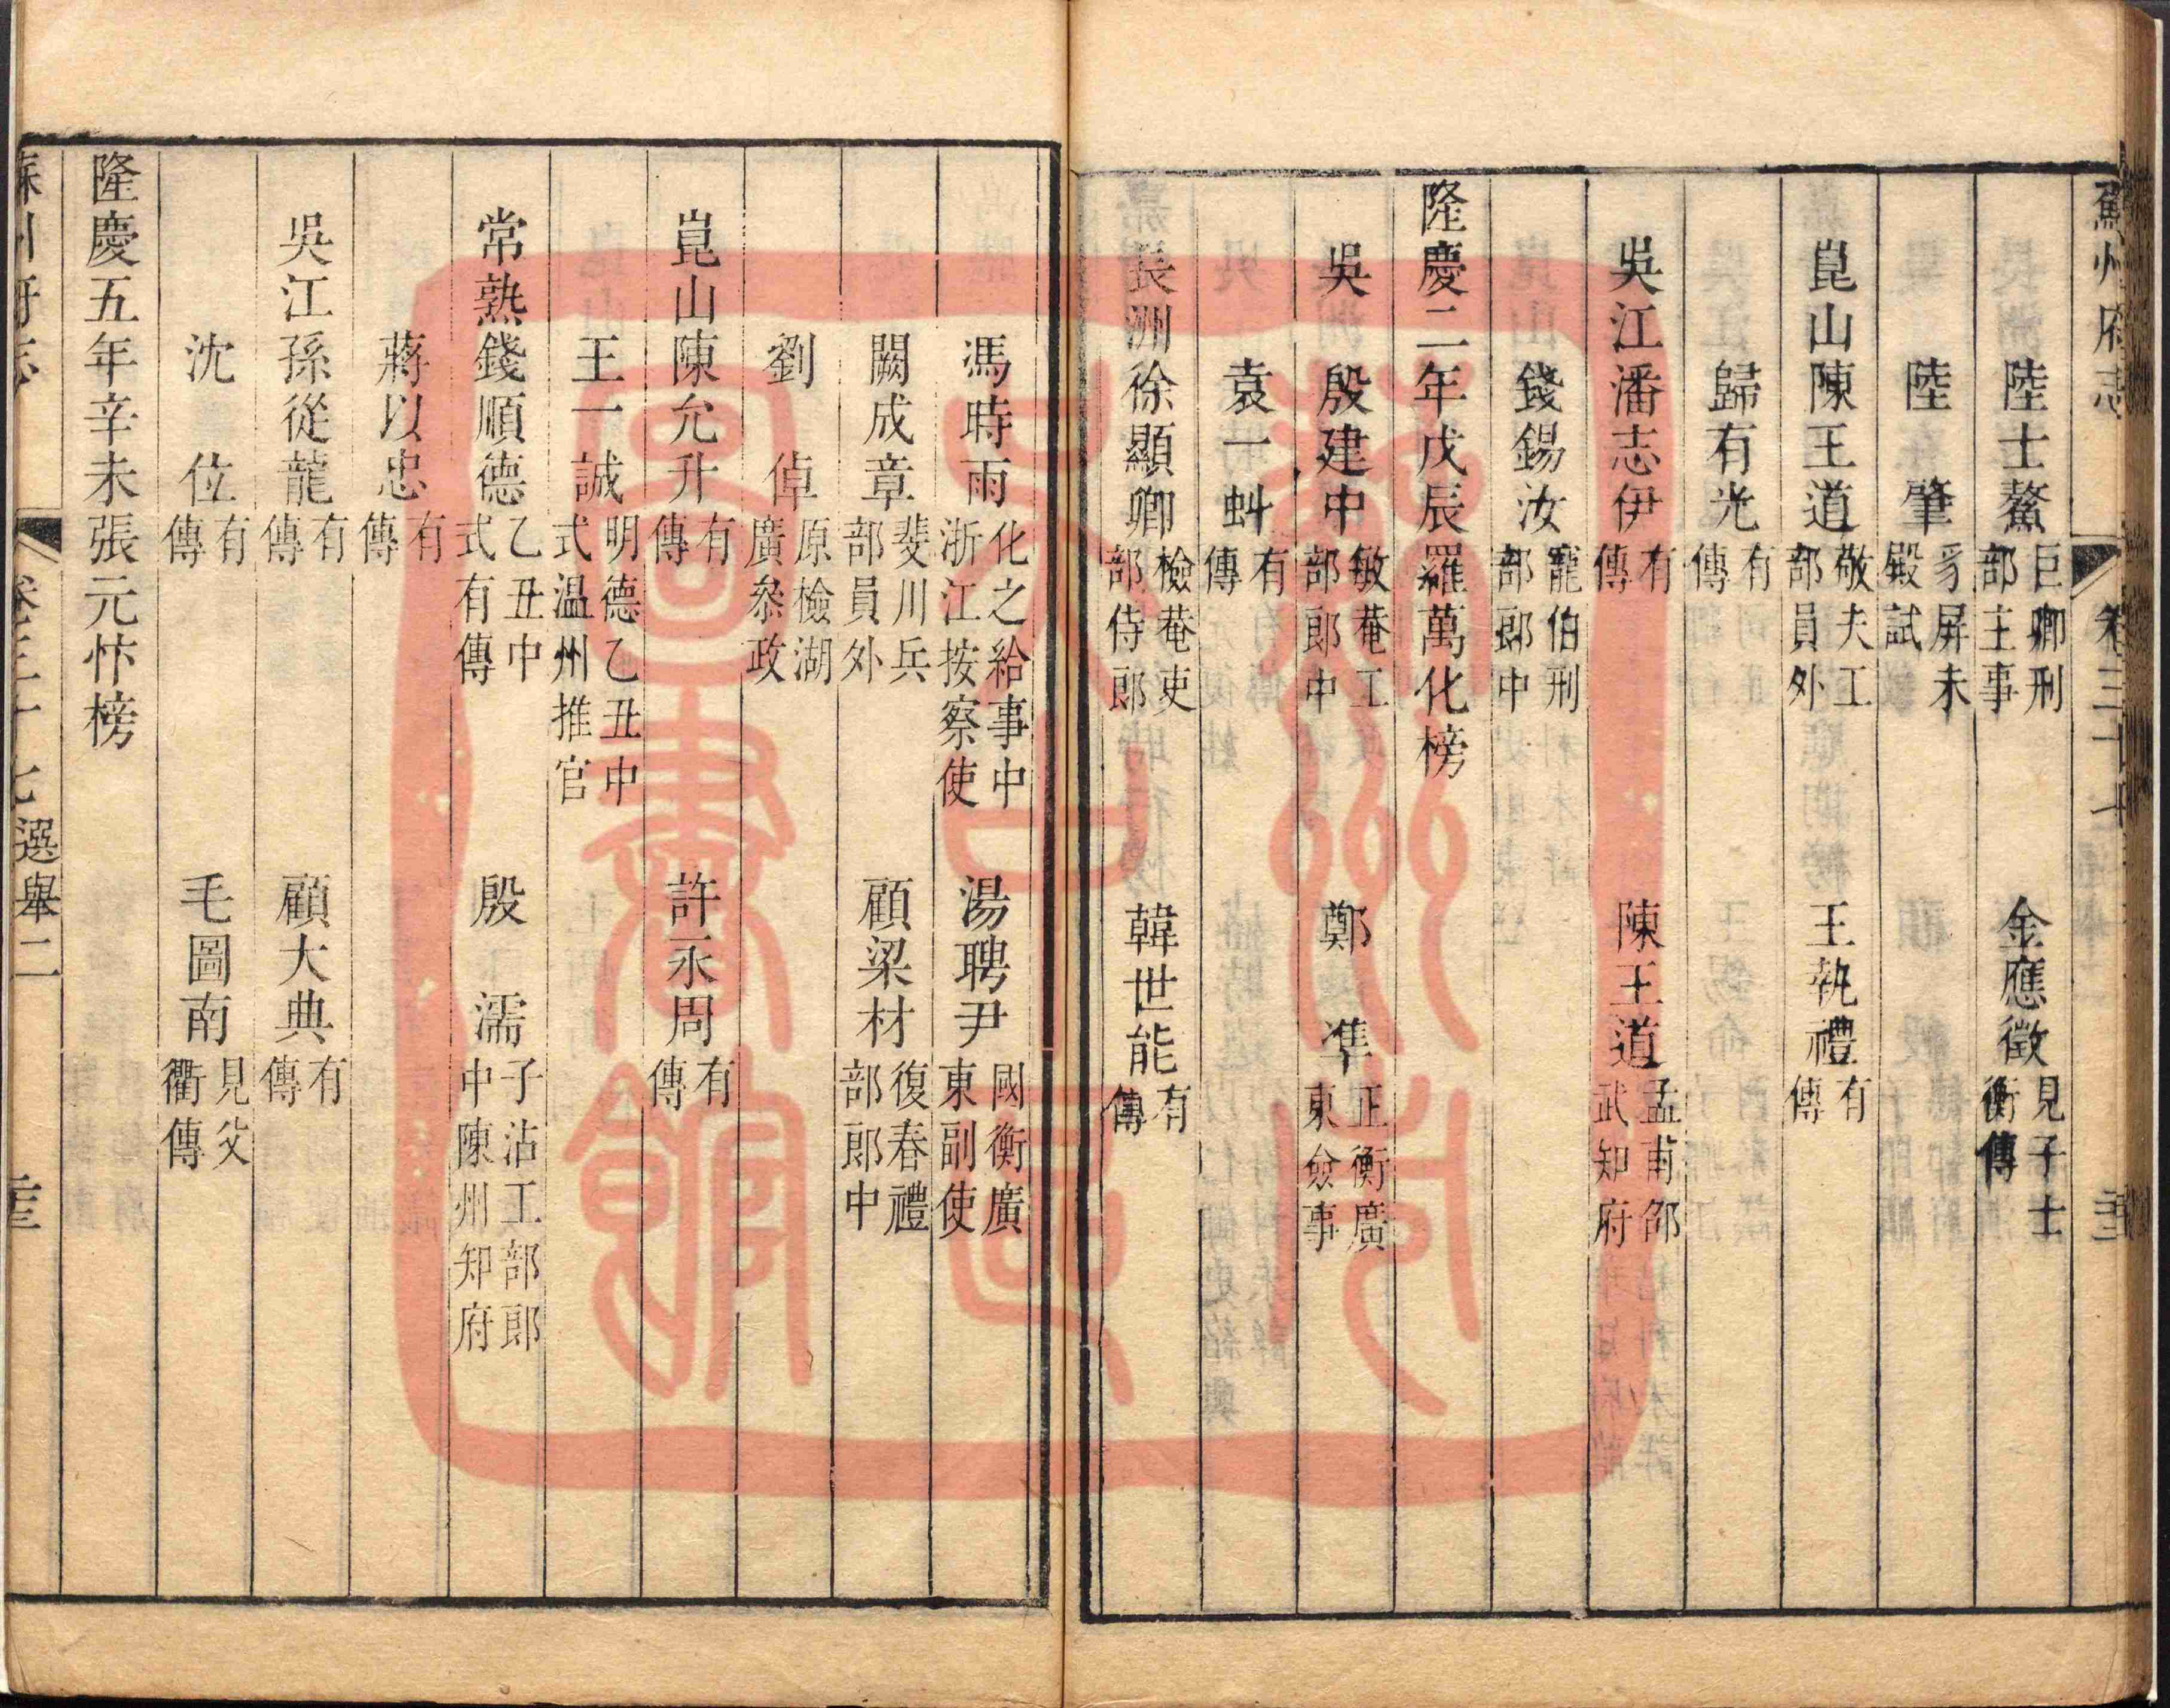 蘇州府志 卷三十七
陸士鰲 巨卿刑部主事 金應徵 見子士衡傳
陸肇 豸屏未殿試
崑山陳王道 敬夫工部員外 王執禮 有傳
歸有光 有傳
吳江潘志伊 有傳 陳王道 孟甫邵武知府
錢錫汝 寵伯刑部郎中
隆慶二年戊辰羅萬化榜
吳 殷建中 敏菴工部郎中 鄭準 正衡廣東僉事
袁一虯 有傳
長洲徐顯卿 檢菴吏部侍郎 韓世能 有傳
馮時雨 化之給事中浙江按察使 湯聘尹 國衡廣東副使
闕成章 斐川兵部員外 顧梁材 復春禮部郎中
劉倬 原檢湖廣叅政
崑山陳允升 有傳 許永周 有傳
王一誠 明德乙丑中式温州推官
常熟錢順德 乙丑中式有傳 殷濡 子沾工部郎中陳州知府
蔣以忠 有傳
吳江孫從龍 有傳 顧大典 有傳
沈位 有傳 毛圖南 見父衢傳
隆慶五年辛未張元忭榜
蘇州府志 卷三十七選舉二